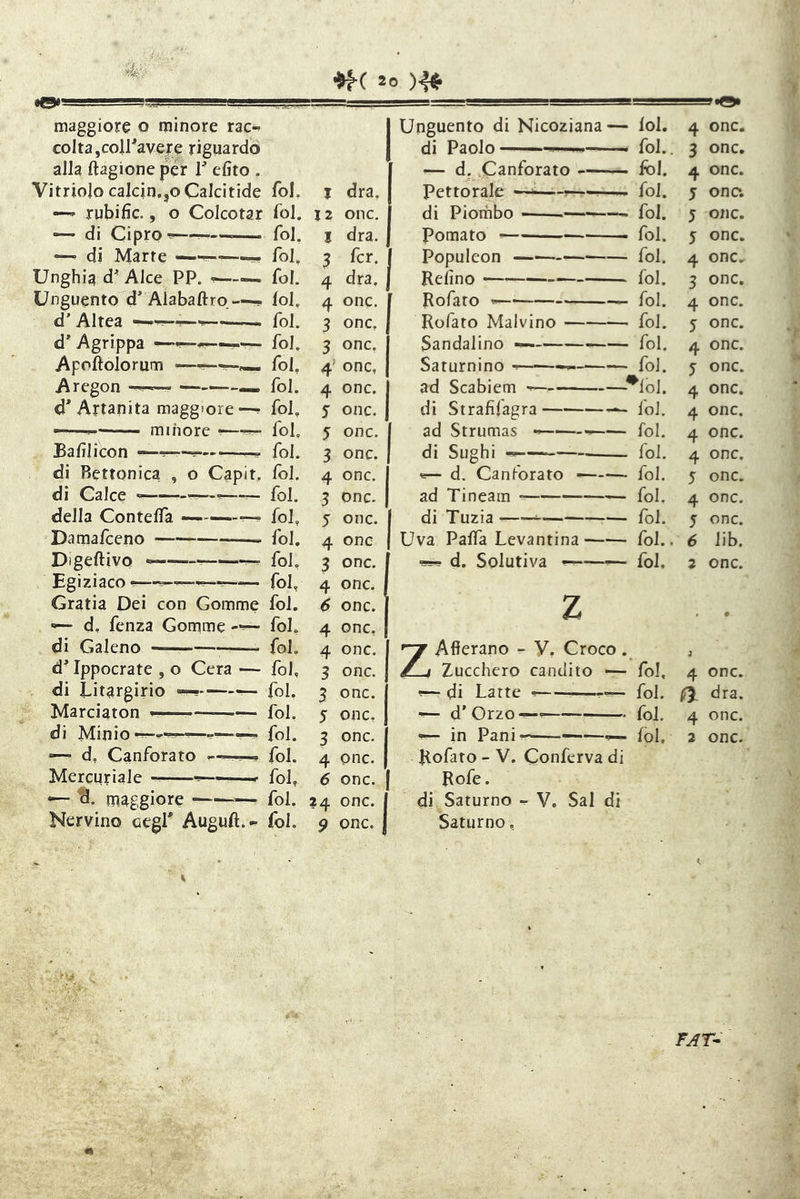 ( 20 )
maggiore o minore rac-
colta,coll'avere riguardo
alla ſtagione per l' eſito .
Vitriolo calcin.,o Calcitide ſol. 1 dra.
— rubific. , o Colcotar ſol. 12 onc.
— di Cipro — ſol. 1 dra.
— di Marte — ſol. 3 ſcr.
Unghia d' Alce PP. — ſol. 4 dra.
Unguento d' Alabaſtro — ſol. 4 onc.
d' Altea — ſol. 3 onc.
d' Agrippa — ſol. 3 onc.
Apoſtolorum — ſol. 4 onc.
Aregon — ſol. 4 onc.
d' Artanita maggiore — ſol. 5 onc.
— minore — ſol. 5 onc.
Baſilicon — ſol. 3 onc.
di Bettonica , o Capit. ſol. 4 onc.
di Calce — ſol. 3 onc.
della Conteſſa — ſol. 5 onc.
Damaſceno — ſol. 4 onc
Digeſtivo — ſol. 3 onc.
Egiziaco — ſol. 4 onc.
Gratia Dei con Gomme ſol. 6 onc.
— d. ſenza Gomme — ſol. 4 onc.
di Galeno — ſol. 4 onc.
d' Ippocrate , o Cera — ſol. 3 onc.
di Litargirio — ſol. 3 onc.
Marciaton — ſol. 5 onc.
di Minio — ſol. 3 onc.
— d. Canforato — ſol. 4 onc.
Mercuriale — ſol. 6 onc.
— d. maggiore — ſol. 24 onc.
Nervino degl' Auguſt. - ſol. 9 onc.
Unguento di Nicoziana — ſol. 4 onc.
di Paolo — ſol. 3 onc.
— d. Canforato — ſol. 4 onc.
Pettorale — ſol. 5 onc.
di Piombo — ſol. 5 onc.
Pomato — ſol. 5 onc.
Populeon — ſol. 4 onc.
Reſino — ſol. 3 onc.
Roſato — ſol. 4 onc.
Roſato Malvino — ſol. 5 onc.
Sandalino — ſol. 4 onc.
Saturnino — ſol. 5 onc.
ad Scabiem — ſol. 4 onc.
di Strafiſagra — ſol. 4 onc.
ad Strumas — ſol. 4 onc.
di Sughi — ſol. 4 onc.
— d. Canforato — ſol. 5 onc.
ad Tineam — ſol. 4 onc.
di Tuzia — ſol. 5 onc.
Uva Paſſa Levantina — ſol. 6 lib.
— d. Solutiva — ſol. 2 onc.
Z
ZAfferano - V. Croco .
Zucchero candito — ſol. 4 onc.
— di Latte — ſol. ß dra.
— d' Orzo — ſol. 4 onc.
— in Pani — ſol. 2 onc.
Roſato - V. Conſerva di
Roſe.
di Saturno - V. Sal di
Saturno.
FAT-